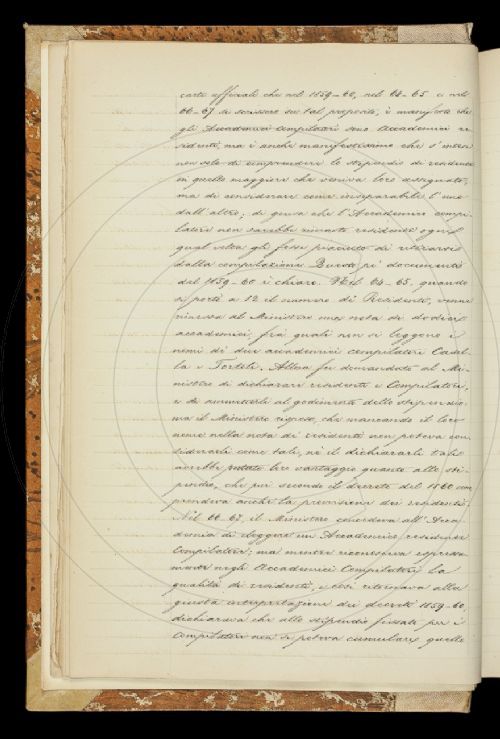 carte officiali che nel 1859-60, nel 64-65 e nel
66-67 si scrissero su tal proposito, è manifesto che
gli Accademici compilatori sono Accademici re
sidenti, ma è anche manifestissimo che s'intese
non solo di comprendere lo stipendio di residenza
in quello maggiore che veniva loro assegnato,
ma di considerare come inseparabile l'uno
dall'altro; di guisa che l'Accademico compi
latore non sarebbe rimasto residente ogni
qual volta gli fosse piaciuto di ritirarsi
dalla compilazione. Questo pei documenti
del 1859-60 è chiaro. Nel 64-65, quando
si portò a 12 il numero di Residenti, venne
rimessa al Ministero una nota di dodici
accademici, fra quali non si leggono i
nomi di due accademici compilatori Casel
la e Tortoli. Allora fu domandato al Mi
nistero di dichiarare residenti i Compilatori,
e di ammetterli al godimento dello stipendio;
ma il Ministero rispose, che mancando il loro
nome nella nota di residenti non poteva con
siderarli come tali, nè il dichiararli tali
avrebbe portato loro vantaggio quanto allo sti
pendio, che pur secondo il decreto del 1860 com
prendeva anche la provvisione dei residenti.
Nel 66-67, il Ministero concedeva all'Acca
demia di eleggere un Accademico residente
Compilatore; ma mentre riconosceva espressa
mente negli Accademici Compilatori la
qualità di residenti, e così ritornava alla
giusta interpretazione dei decreti 1859-60,
dichiarava che allo stipendio fissato per i
Compilatori non si poteva cumulare quello